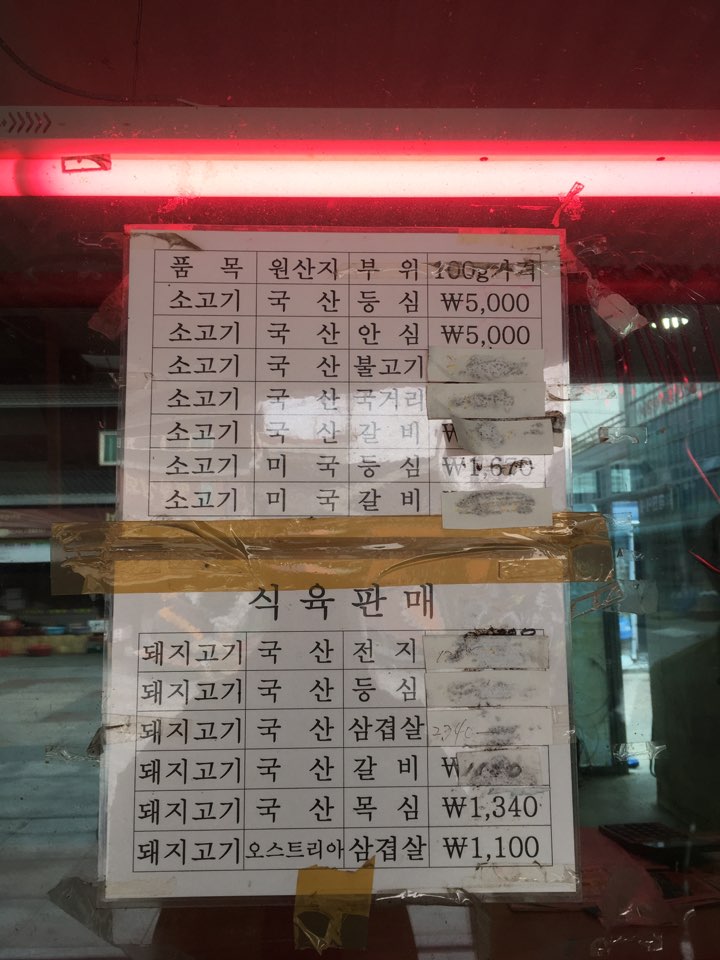 품 목 원산지 부 위 100g가격
소고기 국 산 등 심 ₩5,000
소고기 국 산 안 심 ₩5,000
소고기 국 산 불고기
소고기 국 산 국거리
소고기 국 산 갈 비 ₩
소고기 미 국 등 심 ₩1,670
소고기 미 국 갈 비
식 육 판 매
돼지고기 국 산 전 지
돼지고기 국 산 등 심
돼지고기 국 산 삼겹살
돼지고기 국 산 갈 비 ₩
돼지고기 국 산 목 심 ₩1,340
돼지고기 오스트리아 삼겹살 ₩1,100